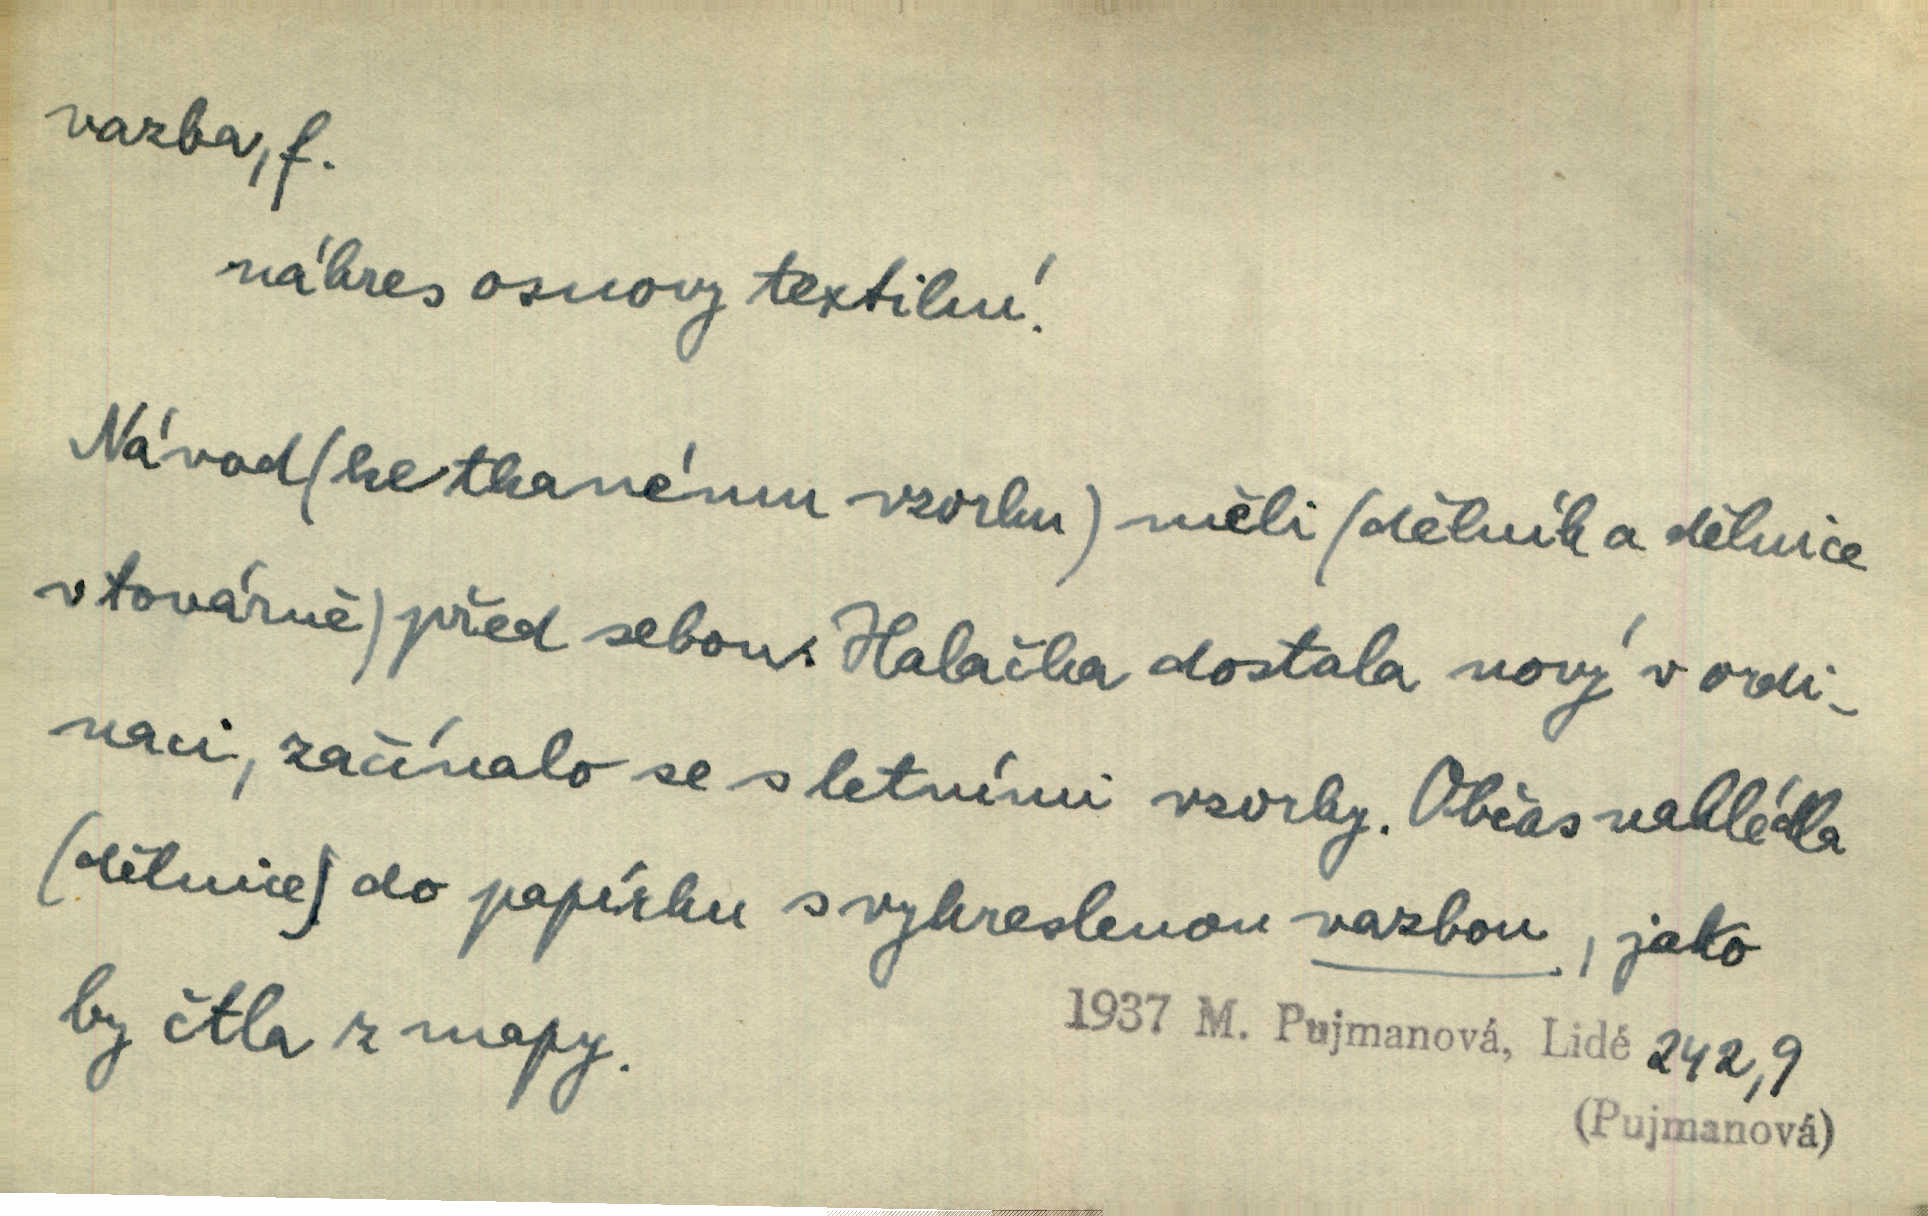 vazba, f.
nákres osnovy textilní.
Návod (ke tkanému vzorku) měli (dělník a dělnice
v továrně) před sebou. Halačka dostala nový v ordi-
naci, začínalo se s letními vzorky. Občas nahlédla
(dělnice) do papírku s vykreslenou vazbou, jako
by čtla z mapy.
1937 M. Pujmanová, Lidé 242,9
(Pujmanová)